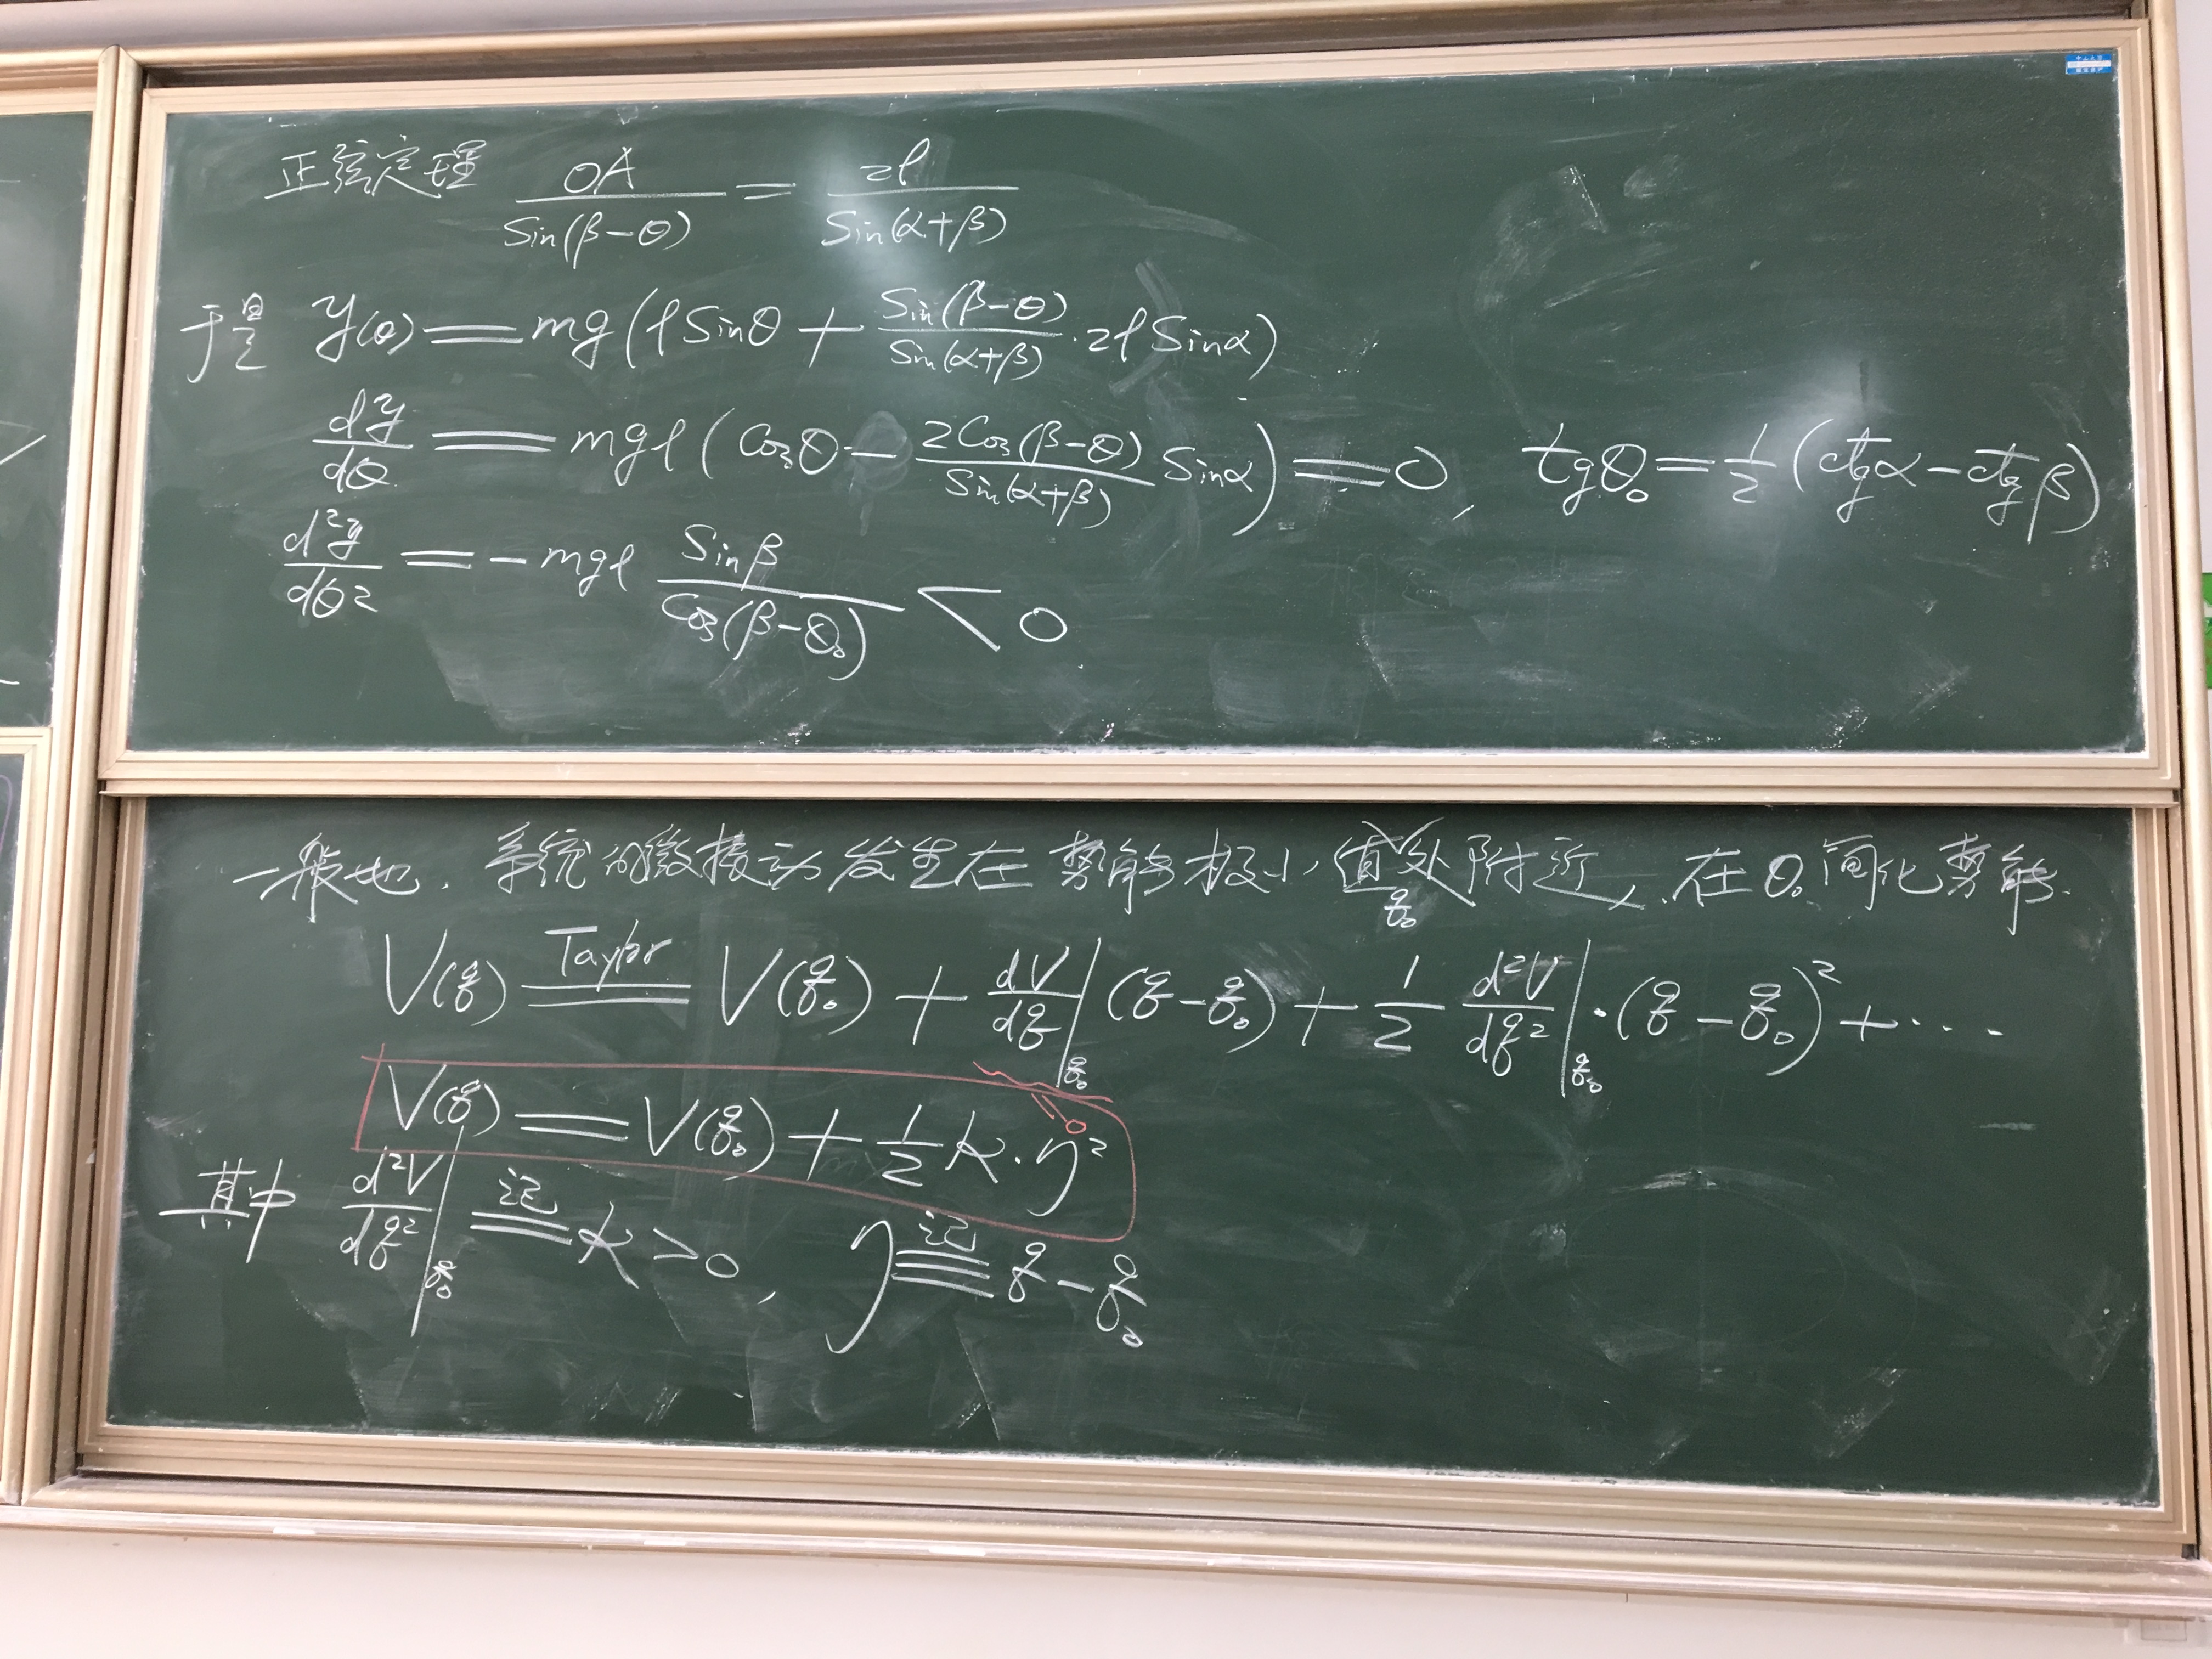 正弦定理 OA/Sin(β-θ) = 2l/Sin(α+β)
于是 y(θ) = mg(lSinθ + Sin(β-θ)/Sin(α+β) · 2l Sinα)
dy/dθ = mgl(Cosθ - 2Cos(β-θ)/Sin(α+β) Sinα) = 0, tgθ₀ = 1/2(ctgα - ctgβ)
d²y/dθ² = -mgl Sinβ/Cos(β-θ₀) < 0
一般地, 系统的微振动发生在势能极小值处附近, 在θ₀简化势能.
q₀
V(q) =Taylor= V(q₀) + dV/dq|q₀ (q-q₀) + 1/2 d²V/dq²|q₀ · (q-q₀)² + ···
0
V(q) = V(q₀) + 1/2 k·η²
其中 d²V/dq²|q₀ 记≡ k > 0, η 记≡ q - q₀